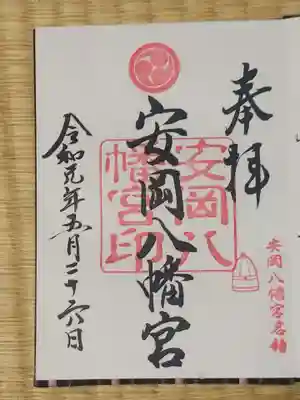 奉拝
安岡八幡宮
安岡八
幡宮印
令和元年五月二十六日
安岡八幡宮名